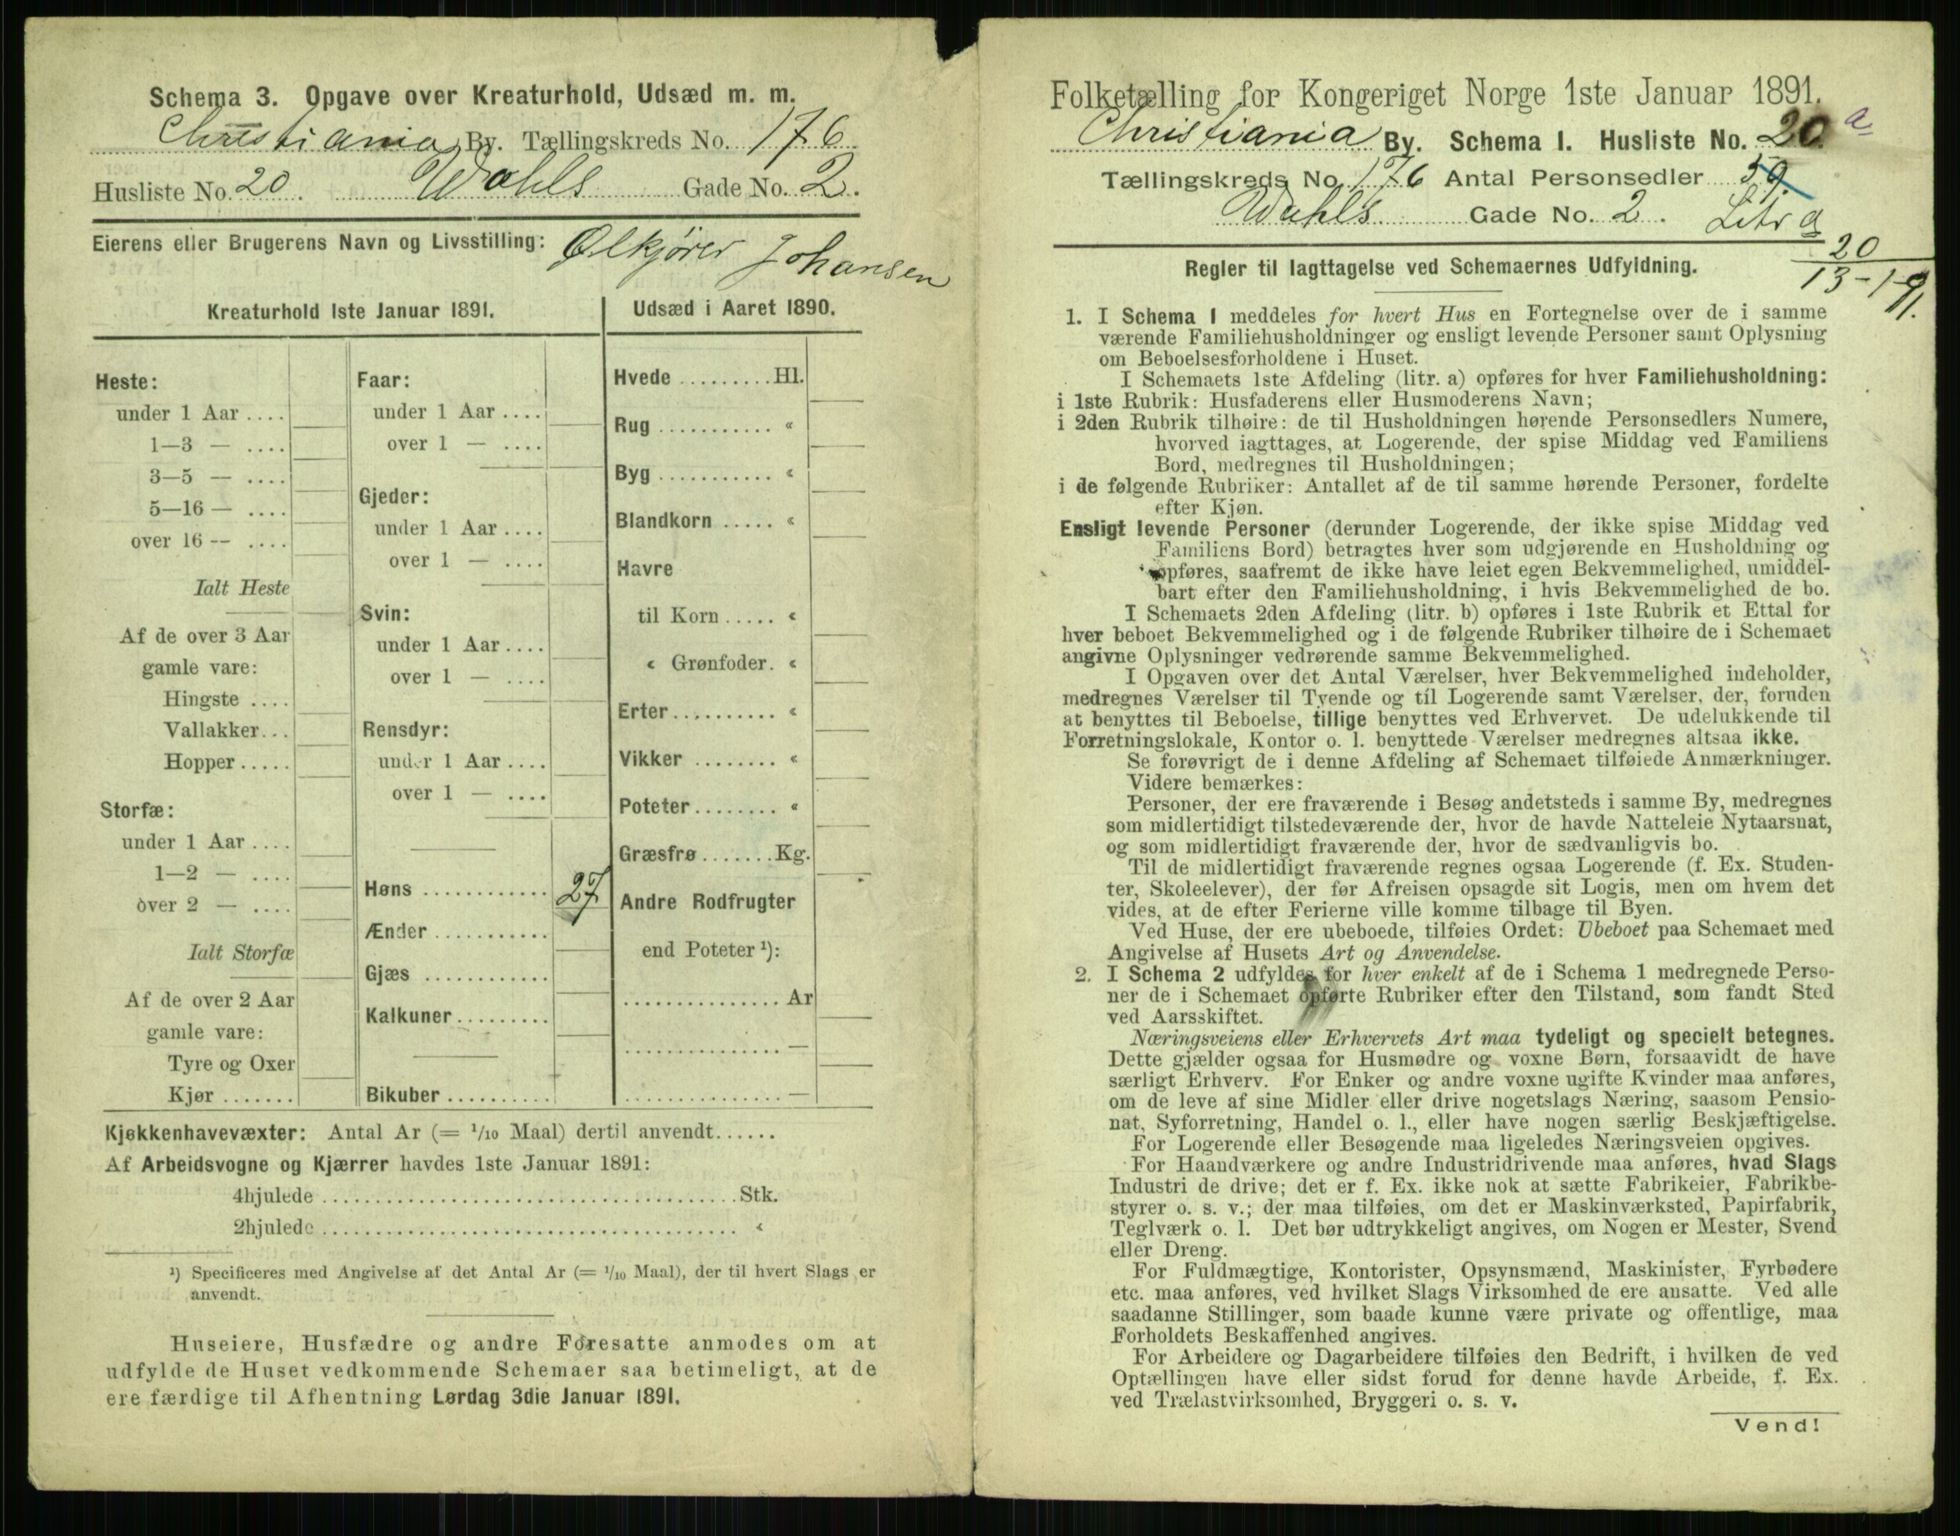 Schema 3. Opgave over Kreaturhold, Udsæd m. m.
Christiania By. Tællingskreds No. 176
Husliste No. 20. Wahls Gade No. 2.
Eierens eller Brugerens Navn og Livsstilling: Ølkjører Johansen
Kreaturhold 1ste Januar 1891.
Heste:
under 1 Aar ....
1—3 — ....
3—5 — ....
5—16 — ....
over 16 -- ....
Ialt Heste
Af de over 3 Aar
gamle vare:
Hingste ....
Vallakker...
Hopper .....
Storfæ:
under 1 Aar ....
1—2 — ....
over 2 — ....
Ialt Storfæ
Af de over 2 Aar
gamle vare:
Tyre og Oxer
Kjør .......
Faar:
under 1 Aar ....
over 1 — ....
Gjeder:
under 1 Aar ....
over 1 — ....
Svin:
under 1 Aar ....
over 1 — ....
Rensdyr:
under 1 Aar ....
over 1 — ....
Høns ............ 27
Ænder ...........
Gjæs ............
Kalkuner.........
Bikuber ..........
Udsæd i Aaret 1890.
Hvede .........Hl.
Rug ........... «
Byg ........... «
Blandkorn ..... «
Havre
til Korn ..... «
« Grønfoder. «
Erter.......... «
Vikker ........ «
Poteter........ «
Græsfrø .......Kg.
Andre Rodfrugter
end Poteter ¹):
...............Ar
............... —
............... —
Kjøkkenhavevæxter: Antal Ar (= 1/10 Maal) dertil anvendt......
Af Arbeidsvogne og Kjærrer havdes 1ste Januar 1891:
4hjulede ........................................Stk.
2hjulede ........................................ «
¹) Specificeres med Angivelse af det Antal Ar (= 1/10 Maal), der til hvert Slags er
anvendt.
Huseiere, Husfædre og andre Foresatte anmodes om at
udfylde de Huset vedkommende Schemaer saa betimeligt, at de
ere færdige til Afhentning Lørdag 3die Januar 1891.
Folketælling for Kongeriget Norge 1ste Januar 1891.
Christiania By. Schema I. Husliste No. 20. a
Tællingskreds No. 176 Antal Personsedler 59.
Wahls Gade No. 2. Litr a
20
13-1-91.
Regler til Iagttagelse ved Schemaernes Udfyldning.
1. I Schema 1 meddeles for hvert Hus en Fortegnelse over de i samme
værende Familiehusholdninger og ensligt levende Personer samt Oplysning
om Beboelsesforholdene i Huset.
I Schemaets 1ste Afdeling (litr. a) opføres for hver Familiehusholdning:
i 1ste Rubrik: Husfaderens eller Husmoderens Navn;
i 2den Rubrik tilhøire: de til Husholdningen hørende Personsedlers Numere,
hvorved iagttages, at Logerende, der spise Middag ved Familiens
Bord, medregnes til Husholdningen;
i de følgende Rubriker: Antallet af de til samme hørende Personer, fordelte
efter Kjøn.
Ensligt levende Personer (derunder Logerende, der ikke spise Middag ved
Familiens Bord) betragtes hver som udgjørende en Husholdning og
opføres, saafremt de ikke have leiet egen Bekvemmelighed, umiddel-
bart efter den Familiehusholdning, i hvis Bekvemmelighed de bo.
I Schemaets 2den Afdeling (litr. b) opføres i 1ste Rubrik et Ettal for
hver beboet Bekvemmelighed og i de følgende Rubriker tilhøire de i Schemaet
angivne Oplysninger vedrørende samme Bekvemmelighed.
I Opgaven over det Antal Værelser, hver Bekvemmelighed indeholder,
medregnes Værelser til Tyende og til Logerende samt Værelser, der, foruden
at benyttes til Beboelse, tillige benyttes ved Erhvervet. De udelukkende til
Forretningslokale, Kontor o. l. benyttede Værelser medregnes altsaa ikke.
Se forøvrigt de i denne Afdeling af Schemaet tilføiede Anmærkninger.
Videre bemærkes:
Personer, der ere fraværende i Besøg andetsteds i samme By, medregnes
som midlertidigt tilstedeværende der, hvor de havde Natteleie Nytaarsnat,
og som midlertidigt fraværende der, hvor de sædvanligvis bo.
Til de midlertidigt fraværende regnes ogsaa Logerende (f. Ex. Studen-
ter, Skoleelever), der før Afreisen opsagde sit Logis, men om hvem det
vides, at de efter Ferierne ville komme tilbage til Byen.
Ved Huse, der ere ubeboede, tilføies Ordet: Ubeboet paa Schemaet med
Angivelse af Husets Art og Anvendelse.
2. I Schema 2 udfyldes for hver enkelt af de i Schema 1 medregnede Perso-
ner de i Schemaet opførte Rubriker efter den Tilstand, som fandt Sted
ved Aarsskiftet.
Næringsveiens eller Erhvervets Art maa tydeligt og specielt betegnes.
Dette gjælder ogsaa for Husmødre og voxne Børn, forsaavidt de have
særligt Erhverv. For Enker og andre voxne ugifte Kvinder maa anføres,
om de leve af sine Midler eller drive nogetslags Næring, saasom Pensio-
nat, Syforretning, Handel o. l., eller have nogen særlig Beskjæftigelse.
For Logerende eller Besøgende maa ligeledes Næringsveien opgives.
For Haandværkere og andre Industridrivende maa anføres, hvad Slags
Industri de drive; det er f. Ex. ikke nok at sætte Fabrikeier, Fabrikbe-
styrer o. s. v.; der maa tilføies, om det er Maskinværksted, Papirfabrik,
Teglværk o. l. Det bør udtrykkeligt angives, om Nogen er Mester, Svend
eller Dreng.
For Fuldmægtige, Kontorister, Opsynsmænd, Maskinister, Fyrbødere
etc. maa anføres, ved hvilket Slags Virksomhed de ere ansatte. Ved alle
saadanne Stillinger, som baade kunne være private og offentlige, maa
Forholdets Beskaffenhed angives.
For Arbeidere og Dagarbeidere tilføies den Bedrift, i hvilken de ved
Optællingen have eller sidst forud for denne havde Arbeide, f. Ex.
ved Trælastvirksomhed, Bryggeri o. s. v.
Vend!